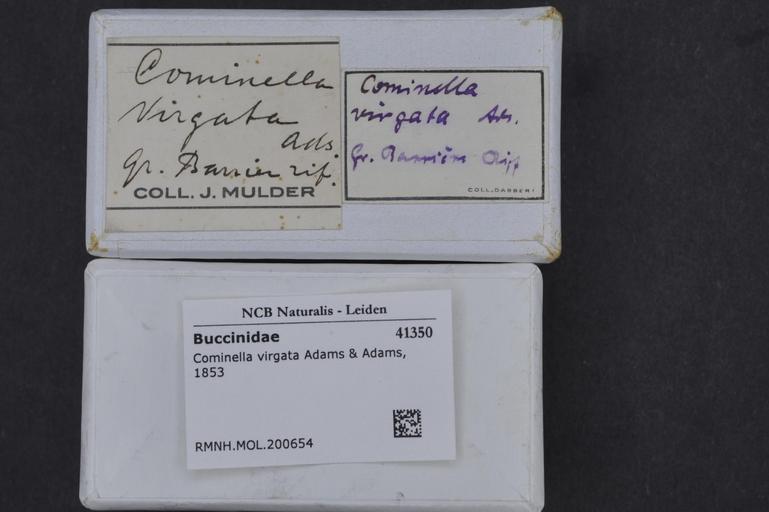 Cominella
Virgata
Ads.
Gr. Barrier rif.
COLL. J. MULDER
Cominella
virgata Ads.
Gr. Barrière Riff
COLL. DARBERI
NCB Naturalis - Leiden
Buccinidae 41350
Cominella virgata Adams & Adams,
1853
RMNH.MOL.200654